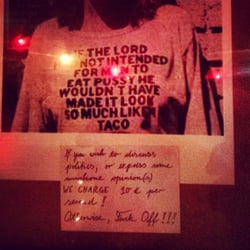 IF THE LORD
HAD NOT INTENDED
FOR MAN TO
EAT PUSSY HE
WOULDN'T HAVE
MADE IT LOOK
SO MUCH LIKE A
TACO
If you wish to discuss
politics, or express some
opinion(s)
WE CHARGE 10 € per
second!
Otherwise, Fuck Off!!!